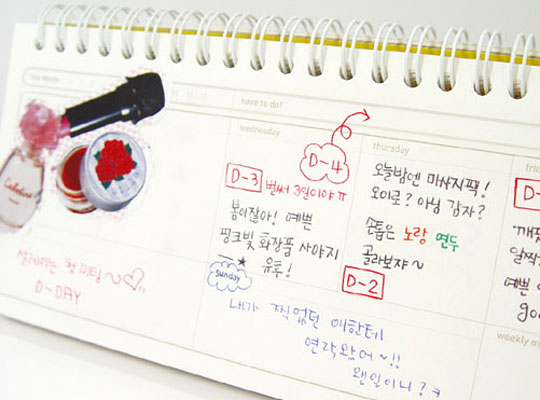 This Month
have to do!
wednesday
thursday
D-4
D-3 벌써 3일이야 ㅠ
봄이잖아! 예쁜
핑크빛 화장품 사야지
유후!
오늘밤엔 마사지팩!
오이로? 아님 감자?
손톱은 노랑 연두
골라보쟈~
D-2
설레이는 첫 미팅~♡
D-DAY
sunday
내가 찍었던 애한테
연락왔어~!!
왠일이니?ㅋ
weekly